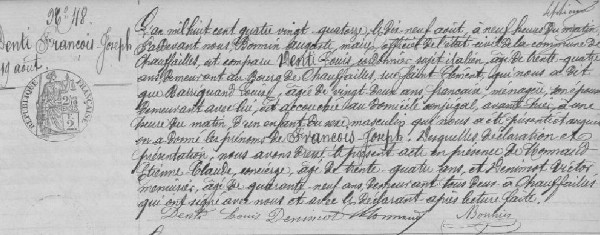 No. 48.
Denti François Joseph
19 août.
L'an mil huit cent quatre vingt quatorze, le dix neuf août, à neuf heures du matin
Par devant nous, Bonnin Auguste, maire, officier de l'état civil de la commune de
Chauffailles, est comparu Denti Louis sujet italien, âgé de trente quatre
ans demeurant au Bourg de Chauffailles, qui nous a dit
que Louise, âgée de vingt deux ans, française, ménagère, son épouse
demeurant avec lui, est accouchée au domicile conjugal, avant hier, à une
heure du matin d'un enfant du sexe masculin qu'il nous a présenté et auquel
on a donné les prénoms de François-Joseph. Desquelles déclaration et
présentation, nous avons dressé le présent acte en présence de Monnaud
Etienne Claude, concierge, âgé de trente quatre ans, et Denimot Victor
menuisier, âgé de quarante neuf ans, demeurant tous deux à Chauffailles
qui ont signé avec nous et avec le déclarant après lecture faite.
Denti Louis Denimot Monnaud Bonnin
RÉPUBLIQUE FRANÇAISE